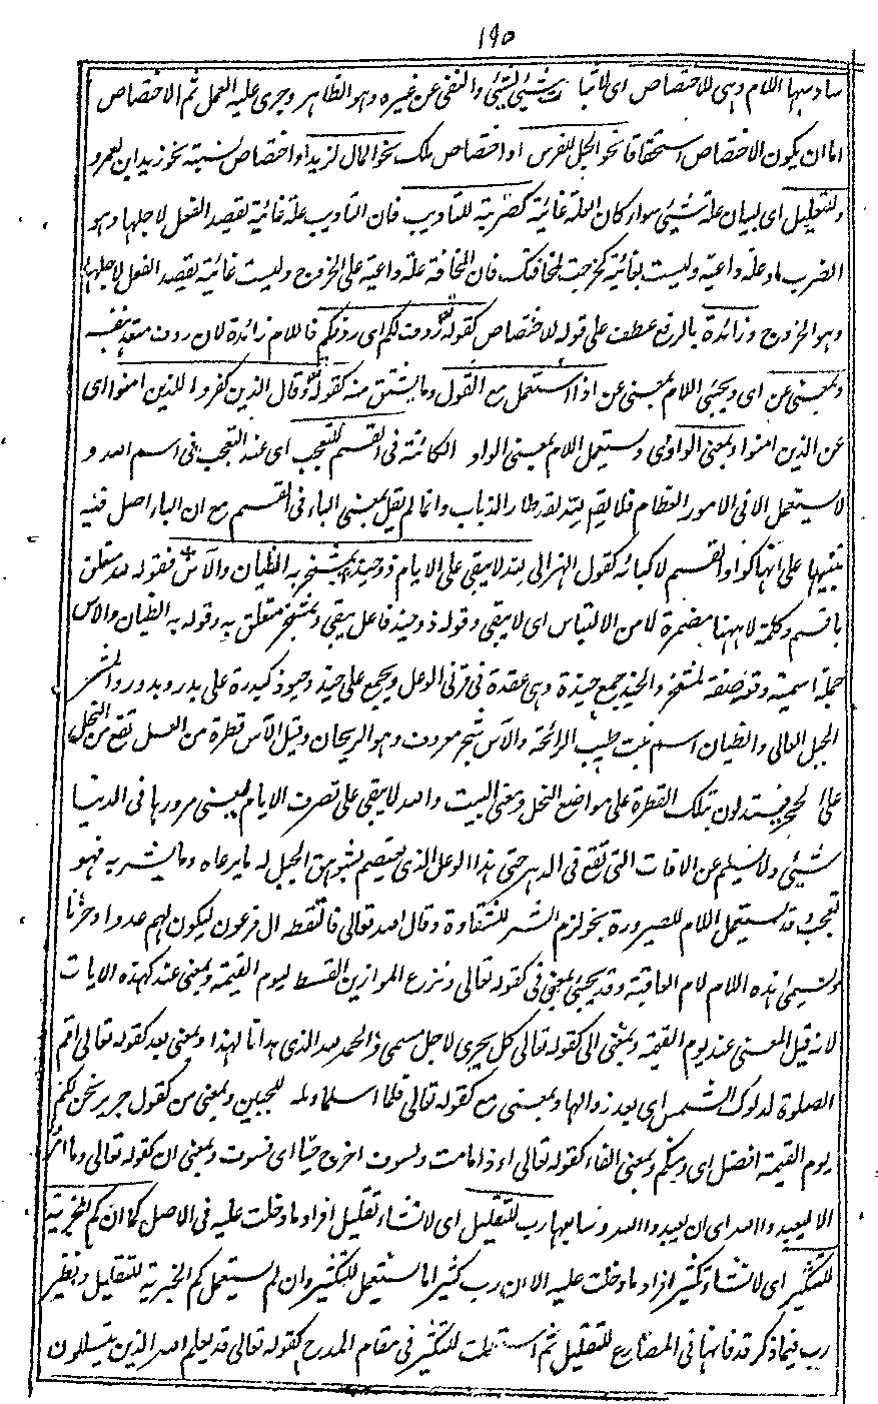 ١٩٥
سادسها اللام وهى للاختصاص اى لاثبات شيئى لشيئى والنفى عن غيره وهو الظاهر وجرى عليه العمل ثم الاختصاص
اما ان يكون الاختصاص استحقاقا نحو الجل للفرس او اختصاص ملك نحو المال لزيد او اختصاص نسبة نحو زيد ابن لعمرو
وللتعليل اى لبيان علة شيئى سواء كان العلة غائية كضربته للتاديب فان التاديب علة غائية يقصد الفعل لاجلها وهو
الضرب او علة داعية وليست بغائية كخرجت لمخافتك فان المخافة علة داعية على الخروج وليست غائية يقصد الفعل لاجلها
وهو الخروج وزائدة بالرفع عطف على قوله للاختصاص كقوله تع ردف لكم اى ردفكم فاللام زائدة لان ردف متعد بنفسه
وبمعنى عن اى ويجيئى اللام بمعنى عن اذا استعمل مع القول وما يشتق منه كقوله تع وقال الذين كفروا للذين امنوا اى
عن الذين امنوا وبمعنى الواو فى ويستعمل اللام بمعنى الواو الكائنة فى القسم للتعجب اى عند التعجب فى اسم الله و
لا يستعمل الا فى الامور العظام فلا يقم لله لقد طار الذباب وانما لم يقل بمعنى الباء فى القسم مع ان الباء اصل فيه
تنبيها على انها كواو القسم لا كبائه كقول الهزالى لله لا يبقى على الايام ذو حيد بمشمخر به الظيان والآس فقوله لله متعلق
باقسم وكلمة لا ههنا مضمرة لامن الالتباس اى لا يبقى وقوله ذو حيد فاعل يبقى وبمشمخر متعلق به وقوله به الظيان والاس
جملة اسمية وقعت صفة لمشمخر والحيد جمع حيدة وهى عقدة فى قرنى الوعل ويجمع على حيد وحيود كبدرة على بدر وبدور والمشمخر
الجبل العالى والظيان اسم نبت طيب الرائحة والآس شجر معروف وهو الريحان وقيل الآس قطرة من العسل تقع من النحل
على الحجر فيستدلون بتلك القطرة على مواضع النحل ومعنى البيت والله لا يبقى على تصرف الايام بمعنى مرورها فى الدنيا
شيئى ولا يسلم عن الافات التى تقع فى الدهر حتى هذا الوعل الذى يعتصم بشواهق الجبل له ما يرعاه وما يشربه فهو
تعجب وقد يستعمل اللام للصيرورة نحو لزم الشر للشقاوة وقال الله تعالى فالتقطه ال فرعون ليكون لهم عدوا وحزنا
وتسمى هذه اللام لام العاقبة وقد يجيئى بمعنى فى كقوله تعالى ونزع الموازين القسط ليوم القيمة وبمعنى عند كهذه الايات
لانه قيل المعنى عند يوم القيمة وبمعنى الى كقوله تعالى كل يجرى لاجل مسمى والحمد لله الذى هدانا لهذا وبمعنى بعد كقوله تعالى اقم
الصلوة لدلوك الشمس اى بعد زوالها وبمعنى مع كقوله تعالى فلما اسلما وتله للجبين وبمعنى من كقول جرير نحن لكم
يوم القيمة افضل اى منكم وبمعنى الفاء كقوله تعالى اءذا مامت ولسوف اخرج حيا اى فسوف وبمعنى ان كقوله تعالى وما امر
الا ليعبدوا الله اى ان يعبدوا الله وسابعها رب للتقليل اى لانشاء تقليل افراد ما دخلت عليه فى الاصل كما ان كم الخبرية
للتكثير اى لانشاء تكثير افراد ما دخلت عليه الا ان رب كثيرا ما يستعمل للتكثير وان لم يستعمل كم الخبرية للتقليل ونظير
رب فيما ذكر قد فانها فى المضارع للتقليل ثم استعملت للتكثير فى مقام المدح كقوله تعالى قد يعلم الله الذين يتسللون